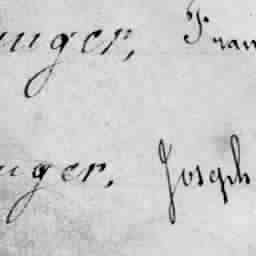 unger, Fran
uger, Joseph